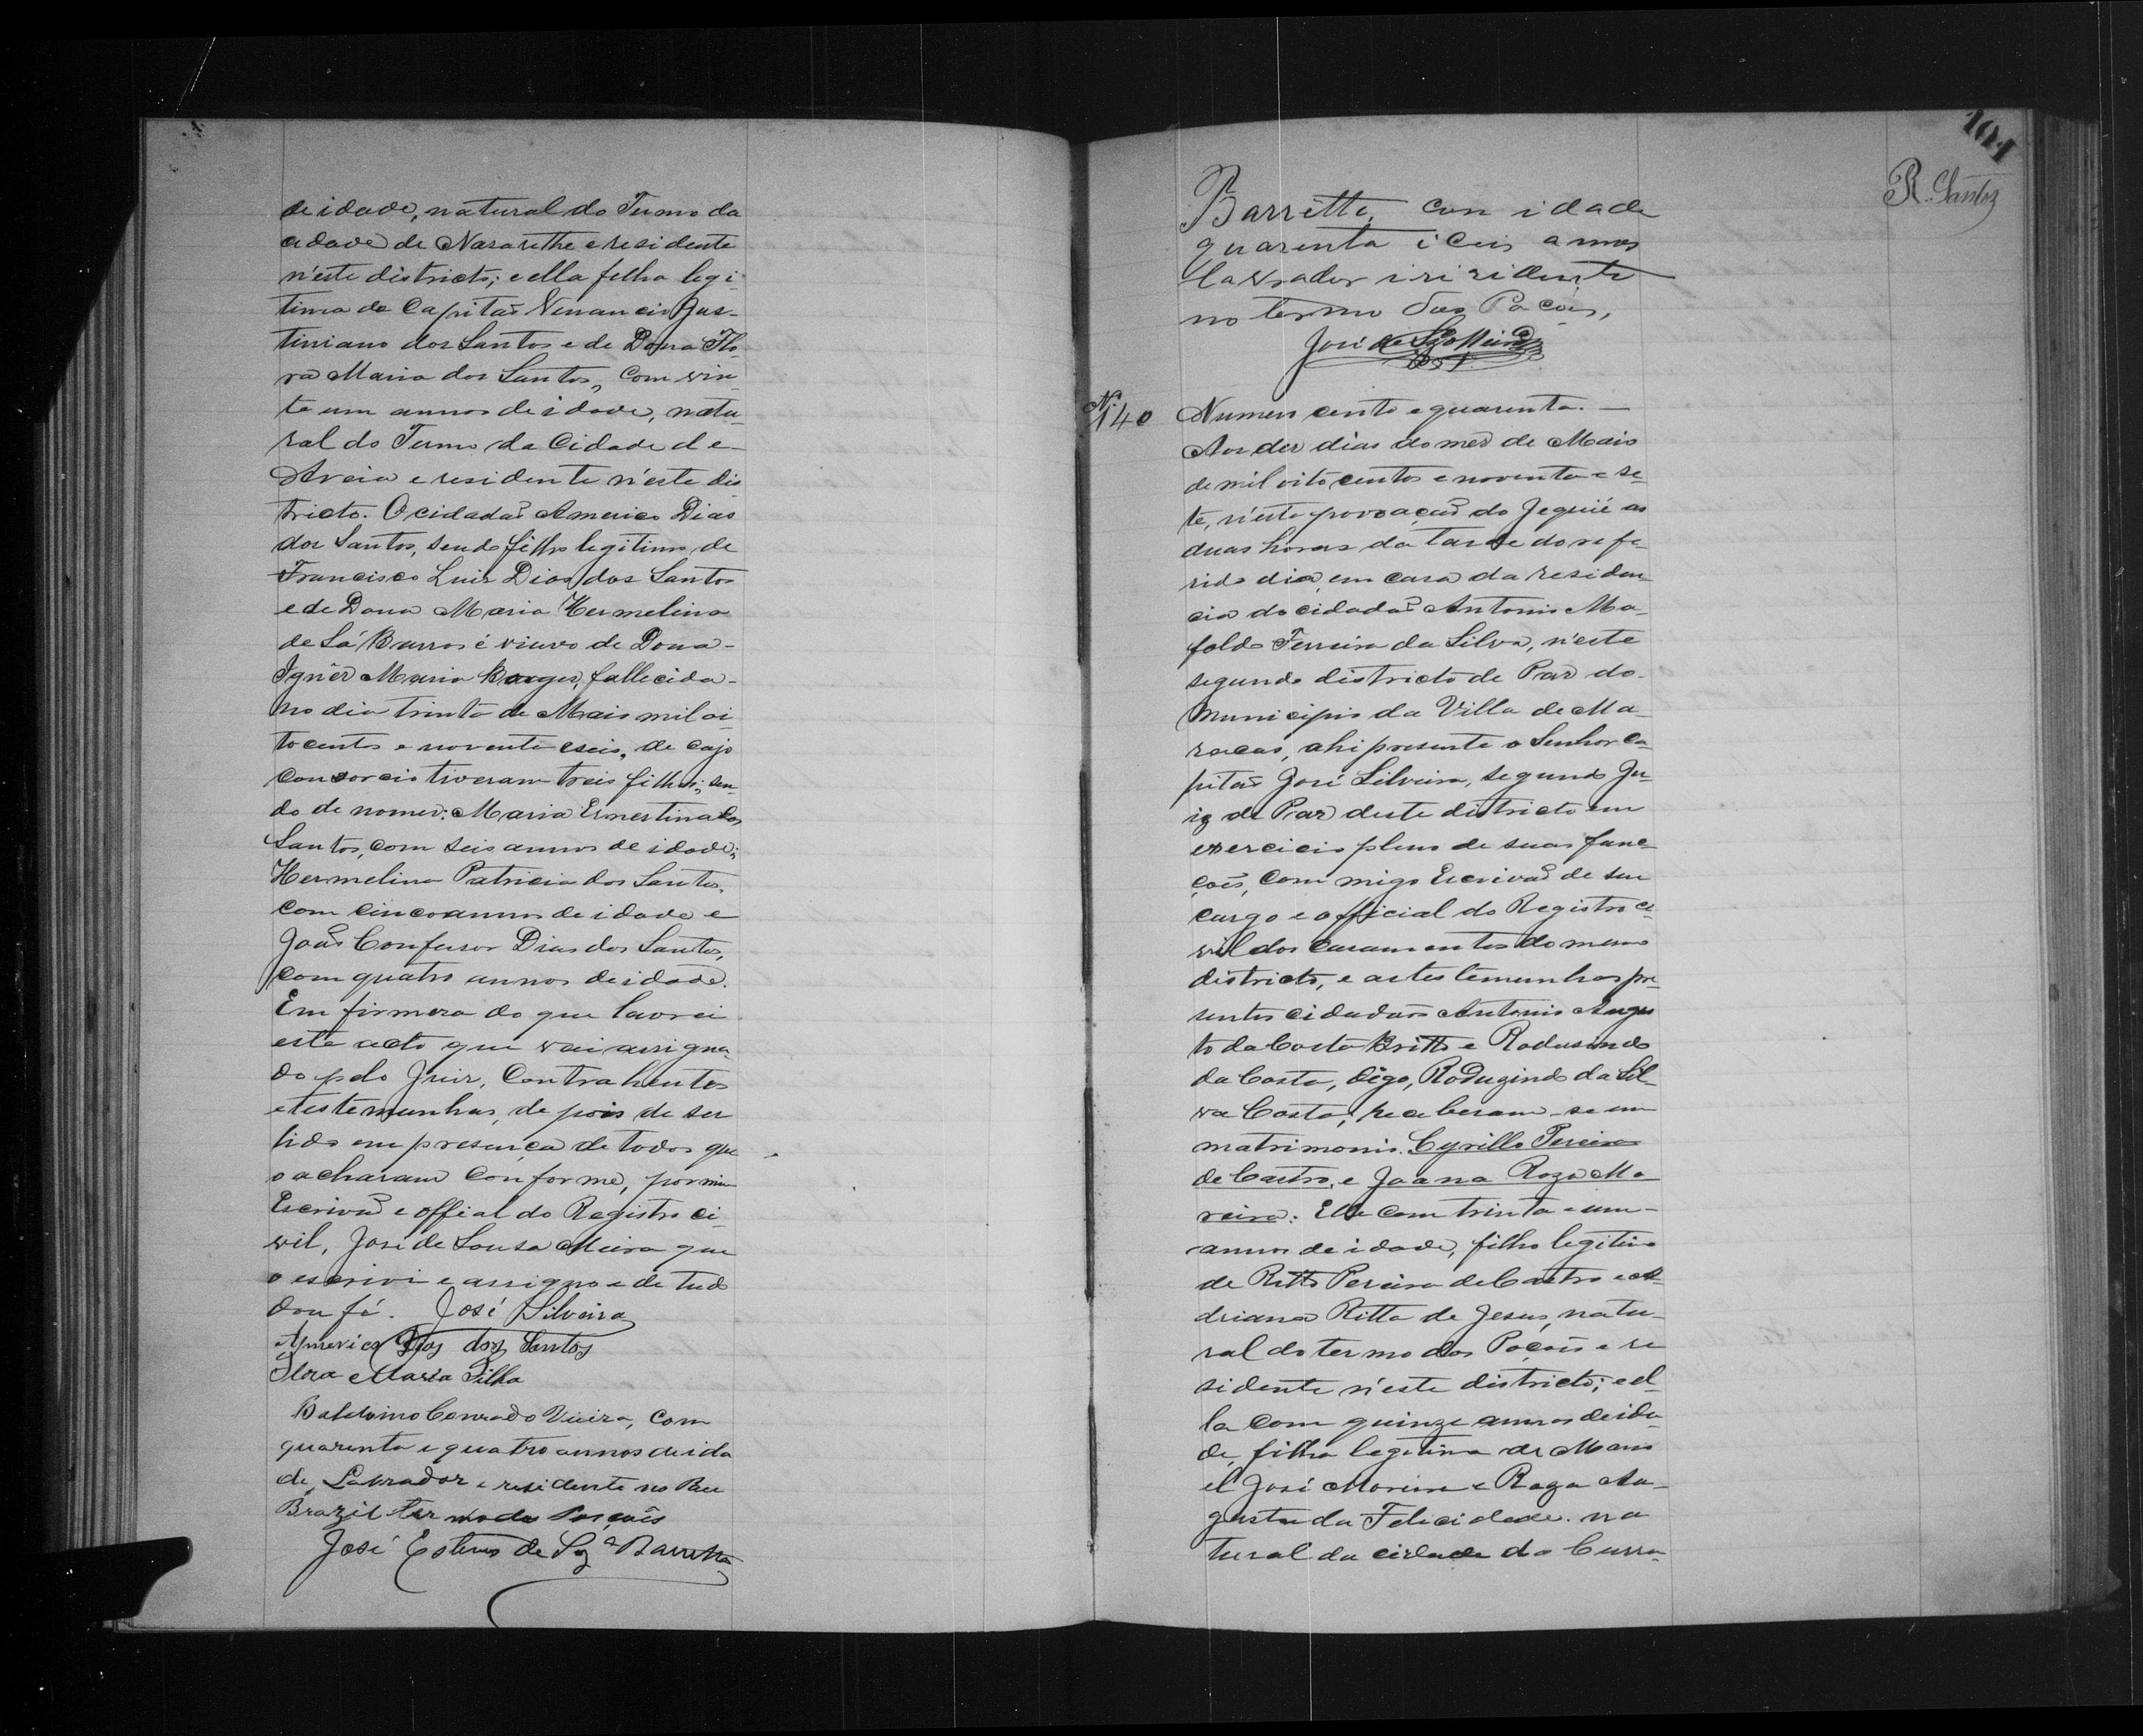 de idade, natural do Termo da
cidade de Nazarethe e residente
n'este districto; e ella filha legi-
tima do Capitaõ Venancio Jus-
tiniano dos Santos e de Dona Flo-
ra Maria dos Santos, com vin-
te um annos de idade, natu-
ral do Termo da Cidade de
Areia e residente n'este dis
tricto. O cidadaõ Americo Dias
dos Santos, sendo filho legitimo de
Francisco Luiz Dias dos Santos
e de Dona Maria Hermelina
de Sá Barros é viuvo de Dona
Ignêz Maria Borges, fallecida
no dia trinta de Maio mil oi
tocentos e noventa e seis, de cujo
consorcio tiveram treis filhos; sen-
do de nomes: Maria Ernestina dos
Santos, com seis annos de idade;
Hermelina Patricia dos Santos,
com cinco annos de idade e
Joaõ Confessor Dias dos Santos,
com quatro annos de idade.
Em firmeza do que lavrei
este acto que vai assigna-
do pelo Juiz, Contrahentes
e testemunhas, de pois de ser
lido em presença de todos que
o acharam conforme, por mim
Escrivaõ e offial do Registro ci-
vil, José de Sousa Meira que
o escrivi e assigno e de tudo
dou fé. José Silveira
Americo Dias dos Santos
Flora Maria Filha
Balduino Conrado Vieira, com
quarenta e quatro annos de ida
de, Lavrador e residente no
Brazil termo de Poçoês
José Esteves de Sza Barretto
101
R. Santos
Barretto, con idade
quarenta i ceis annos
lavrador i risidente
no termo dos Pocões,
José de Sza Meira
N.
140
Numero cento e quarenta. —
Aos dez dias do mez de Maio
de mil oito centos e noventa e se-
te, n'esta povoaçaõ do Jequié as
duas horas da tarde do refe-
rido dia, em casa da residen-
cia do cidadaõ Antonio Ma-
faldo Ferreira da Silva, n'este
segundo districto de Paz do
Municipio da Villa de Ma-
racas, ahi presente o Senhor Ca-
pitaõ José Silveira, segundo Ju-
iz de Paz deste districto em
exercicio pleno de suas func-
çoẽs, com migo Escrivaõ de seu
cargo e official do Registro ci-
vil dos casamentos do mesmo
districto, e as testemunhas pre-
sentes cidadaõs Antonio Augus
to da Costa Britto e Rodusindo
da Costa, digo, Rodugindo da Sil-
va Costa, receberam-se em
matrimonio. Cyrillo Pereira
de Castro, e Joana Roza Mo
reira: Elle com trinta e um
annos de idade, filho legitimo
de Ritto Pereira de Castro e A-
driana Ritta de Jesus, natu-
ral do termo dos Poçoẽs e re
sidente n'este districto; e el-
la com quinze annos de ida-
de, filha legitima de Mano
el José Moreira e Roza Au-
gusta da Felicidade. na
tural da cidade da Curra-